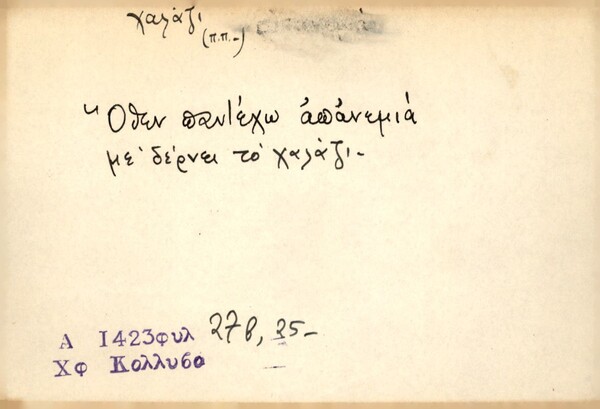 χαλάζι
(π.π.-)
"Όθεν παντέχω ἀπανεμιά
με δέρνει το χαλάζι-
Α 1423φυλ 27β, 25-
Χφ Κολλυβα